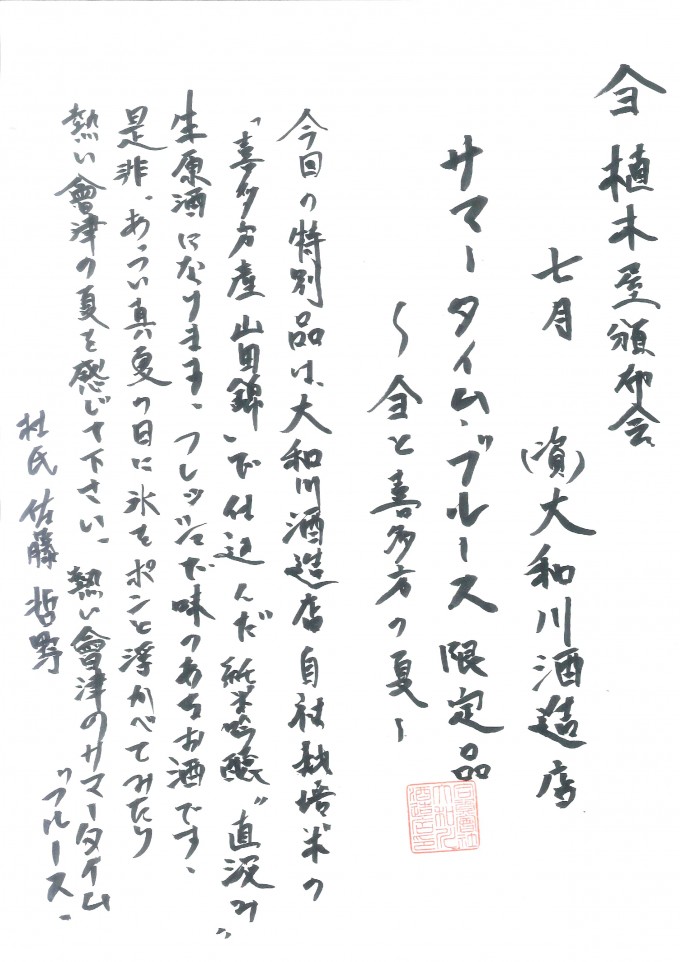 ヨ 植木屋頒布会
七月 (資)大和川酒造店
サマータイム・ブルース 限定品
〜ヨと喜多方の夏〜
今回の特別品は、大和川酒造店自社栽培米の
「喜多方産山田錦」で仕込んだ純米吟醸“直汲み”
生原酒になります。フレッシュな味のあるお酒です。
是非、あつい真夏の日に氷をポンと浮かべてみたり
熱い會津の夏を感じて下さい。熱い會津のサマータイム
“ブルース”
杜氏 佐藤 哲野
合資会社大和川酒造店印